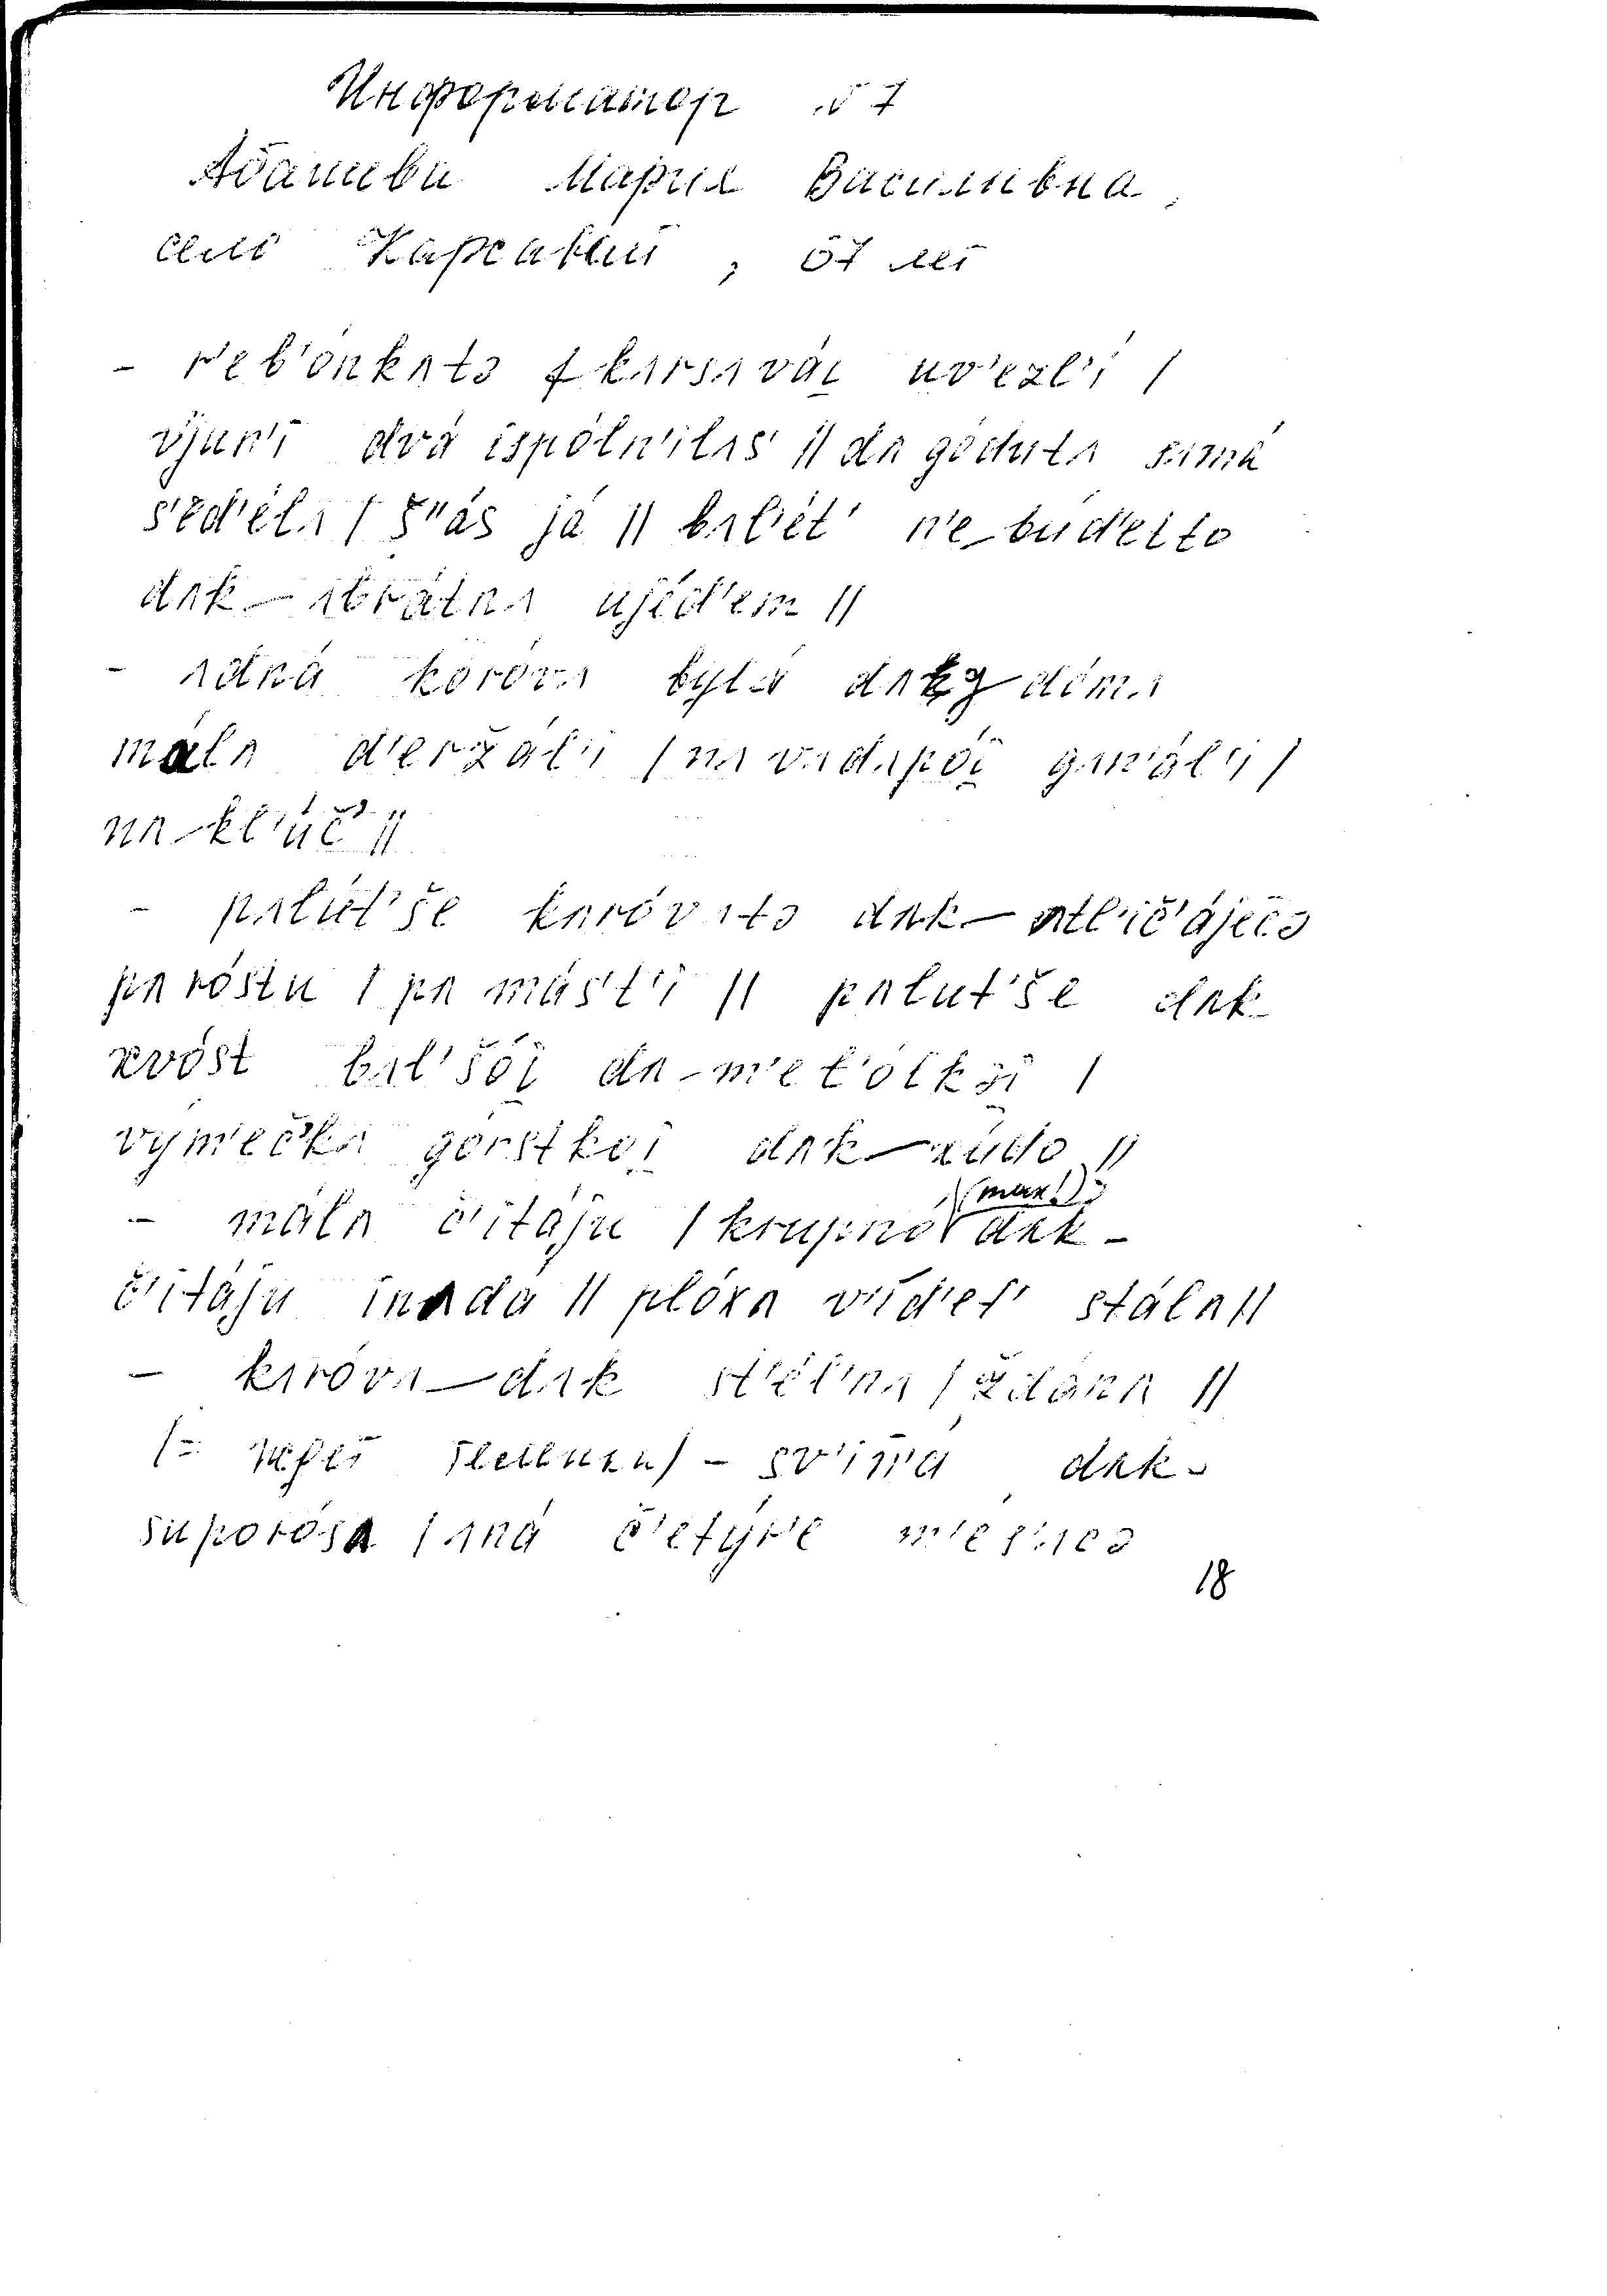 Информатор № 7
Абашева Мария Василивна,
село Карсавай, 67 лет
- r'eb'ónkʌtə f kʌrsʌvái̯ uv'ezl'í /
vjun'í dvá ispóln'ilʌs' // dʌ gódutʌ sʌmá
s'ed'élʌ / š''ás já // bʌl'ét' n'e‿búd'etto
dʌk‿ʌbrátnʌ ujéd'em //
- ʌdná koróvʌ bylá dʌkg dómʌ
málʌ d'eržál'i / nʌ vʌdʌpói̯ gʌn'ál'i /
nʌ‿kl'úč' //
- pʌlút'še kʌróvʌtə dʌk‿ʌtl'ič'ájeccə
pʌ róstu / pʌ más't'i // pʌlut'še dʌk‿
xvóst bʌl'šói̯ dʌ‿m'et'ólkəi̯ /
vým'ečkʌ górstkoi̯ dʌk‿xúdo //
- málʌ č'itáju / krupnó (max!) dʌk‿
č'itáju inʌdá // plóxʌ v'íd'et' stálʌ //
- kʌróvʌ‿dʌk st'él'nʌ / ždánʌ //
(= ждёт телёнка) - sv'in'já dʌk‿
suporósʌ / ʌná č'etýr'e m'és'ʌcə
18